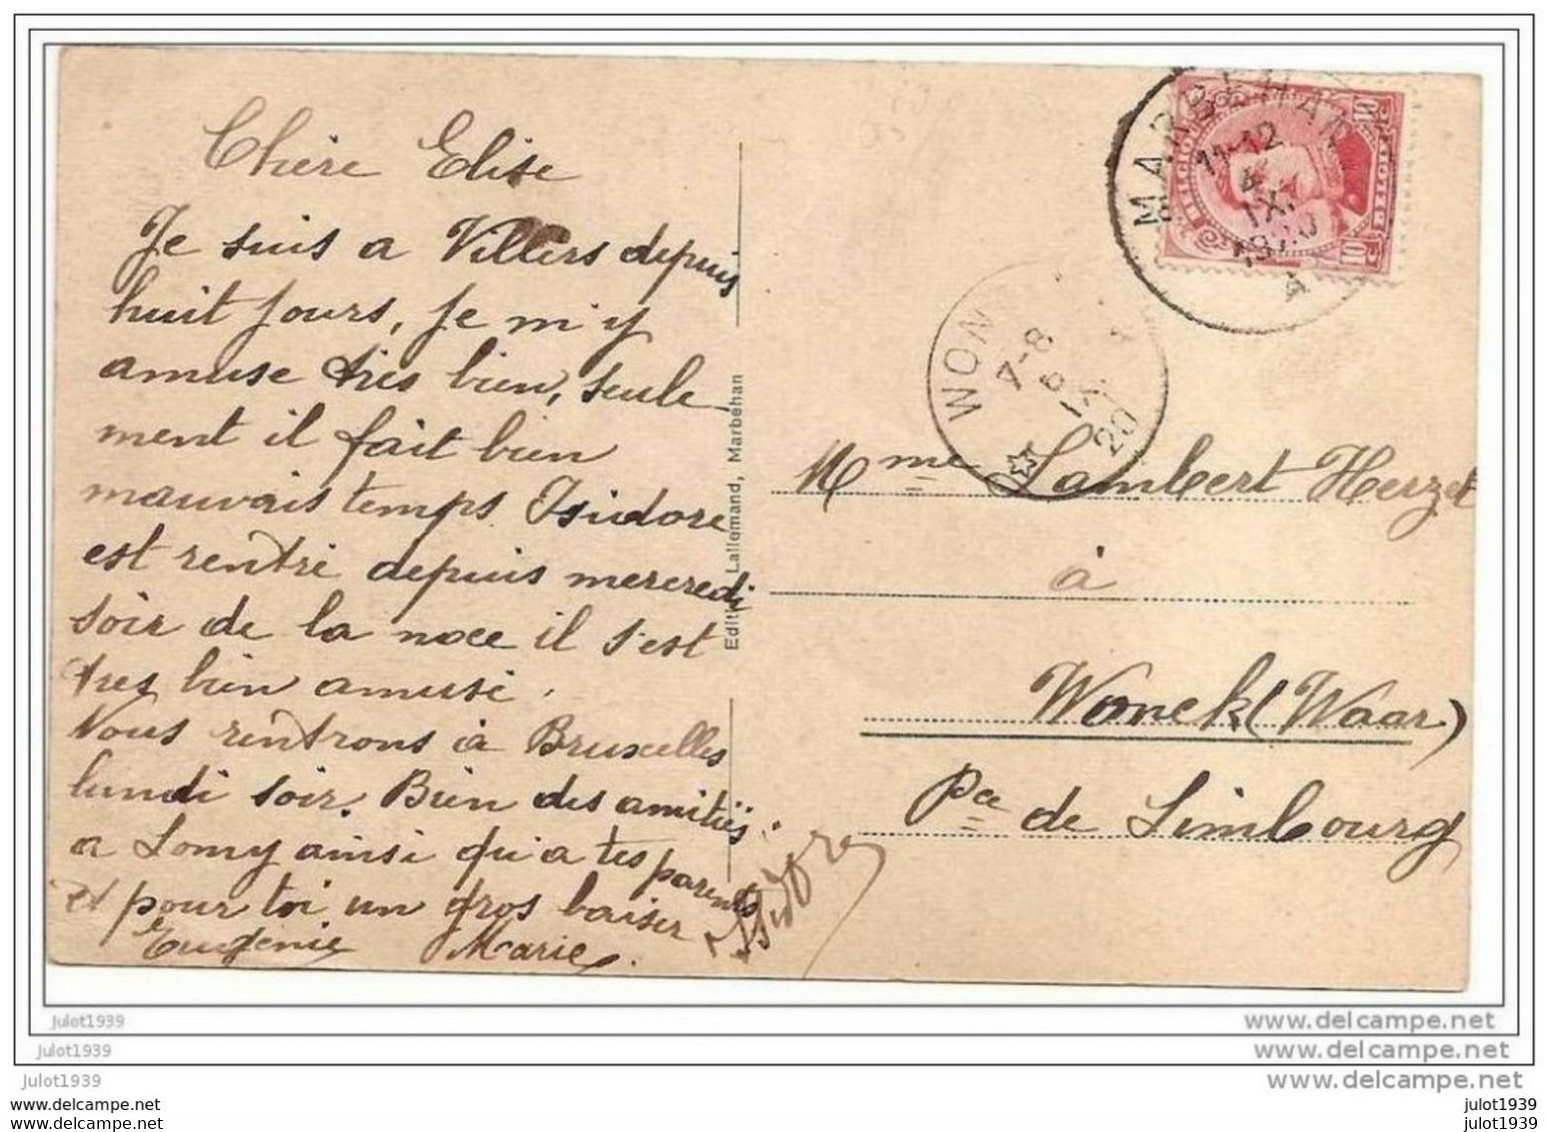 Chère Elise
Je suis a Villers depuis
huit jours, je m'y
amuse très bien, seule
ment il fait bien
mauvais temps. Isidore
est rentré depuis mercredi
soir de la noce il s'est
tres bien amusé.
Nous rentrons à Bruxelles
lundi soir. Bien des amitiés
a Lomy ainsi qu'a tes parents
et pour toi un gros baiser
Eugénie Marie.
Isidore
Lallemand, Marbehan
MARBEHAN
11-12
4
IX
A
BELGIQUE
BELGIE
10 C
10 C
WON
7-8
20
Mme Lambert Herzet
à
Wonck (Waar)
Pce de Limbourg
julot1939
julot1939
julot1939
julot1939
julot1939
www.delcampe.net
www.delcampe.net
www.delcampe.net
julot1939
julot1939